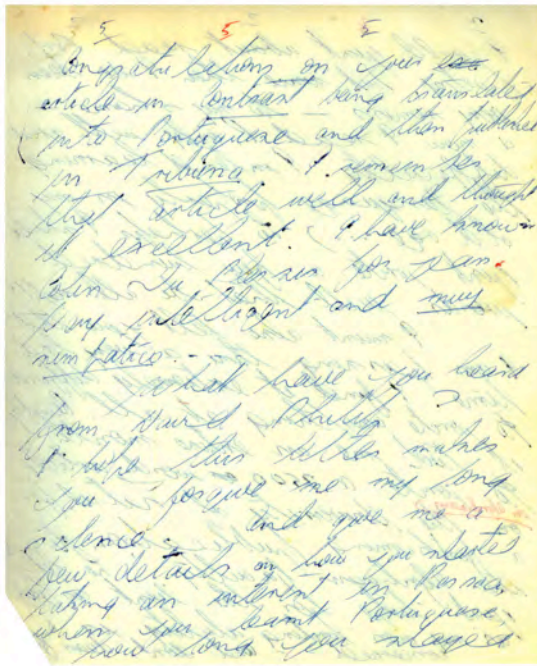 5 5 5
Congratulations on your
article in Contrast being translated
into Portuguese and then published
in Tribuna. I remember
that article well and thought
it excellent. I have known
for years.
Very intelligent and muy
simpatico.-
What have you heard
from David Philip?
I hope this letter makes
you forgive me my long
silence. and give me a
few details on how you started
taking an interest in Pessoa,
when you learnt Portuguese,
how long you stayed